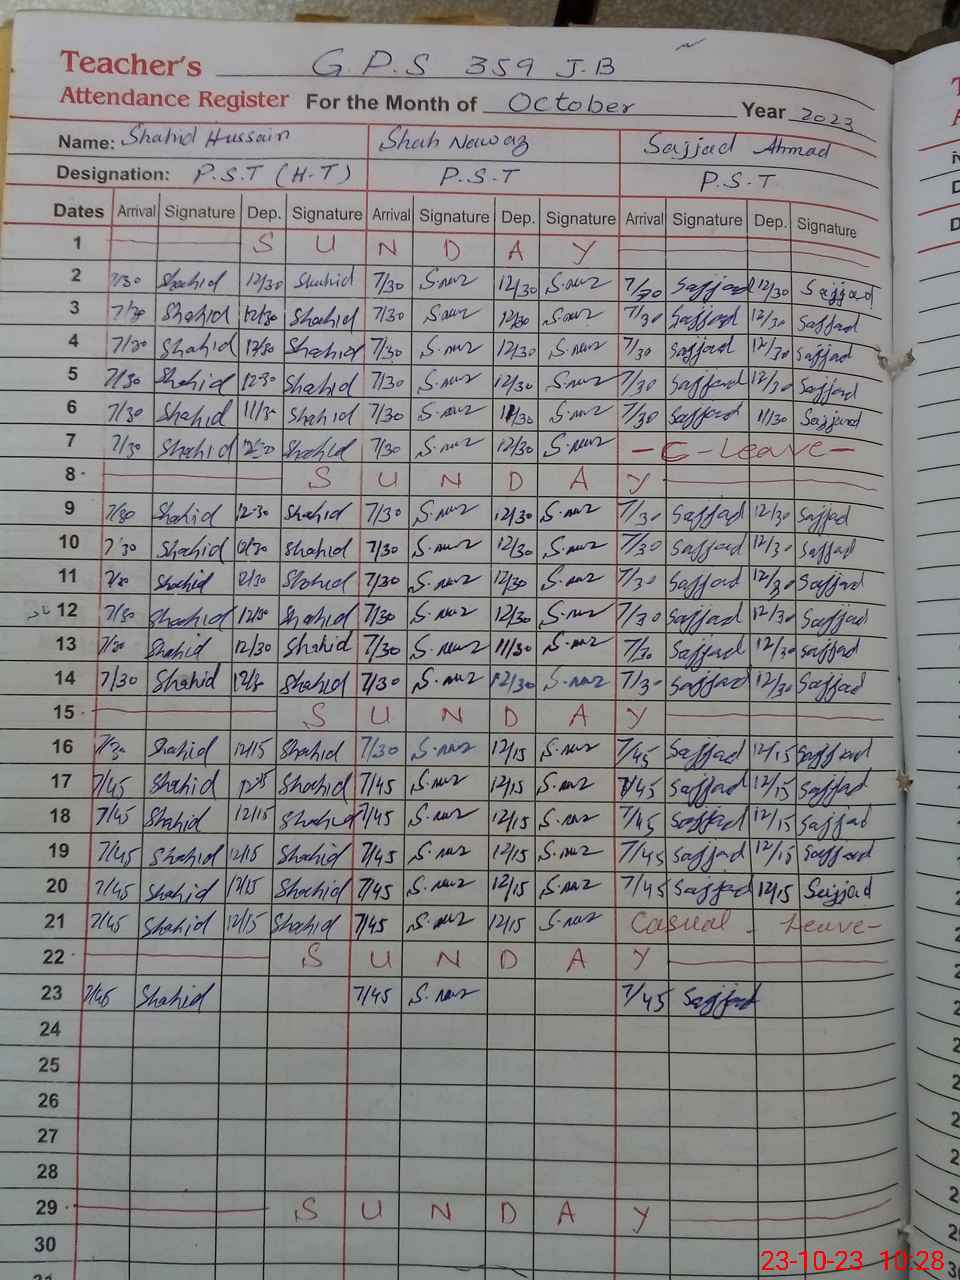 Teacher's G.P.S 359 J.B
Attendance Register For the Month of October Year 2023
Name: Shahid Hussain Shah Nawaz Sajjad Ahmad
Designation: P.S.T (H.T) P.S.T P.S.T.
Dates Arrival Signature Dep. Signature Arrival Signature Dep. Signature Arrival Signature Dep. Signature
1 S U N D A Y
2 7/30 Shahid 12/30 Shahid 7/30 S.nwz 12/30 S.nwz 7/30 Sajjad 12/30 Sajjad
3 7/30 Shahid 12/30 Shahid 7/30 S.nwz 12/30 S.nwz 7/30 Sajjad 12/30 Sajjad
4 7/30 Shahid 12/30 Shahid 7/30 S.nwz 12/30 S.nwz 7/30 Sajjad 12/30 Sajjad
5 7/30 Shahid 12-30 Shahid 7/30 S.nwz 12/30 S.nwz 7/30 Sajjad 12/30 Sajjad
6 7/30 Shahid 11/30 Shahid 7/30 S.nwz 11/30 S.nwz 7/30 Sajjad 11/30 Sajjad
7 7/30 Shahid 12-30 Shahid 7/30 S.nwz 12/30 S.nwz - C - Leave -
8 S U N D A Y
9 7/30 Shahid 12-30 Shahid 7/30 S.nwz 12/30 S.nwz 7/30 Sajjad 12/30 Sajjad
10 7/30 Shahid 12/30 Shahid 7/30 S.nwz 12/30 S.nwz 7/30 Sajjad 12/30 Sajjad
11 7/30 Shahid 12/30 Shahid 7/30 S.nwz 12/30 S.nwz 7/30 Sajjad 12/30 Sajjad
12 7/30 Shahid 12/30 Shahid 7/30 S.nwz 12/30 S.nwz 7/30 Sajjad 12/30 Sajjad
13 7/30 Shahid 12/30 Shahid 7/30 S.nwz 11/30 S.nwz 7/30 Sajjad 12/30 Sajjad
14 7/30 Shahid 12/30 Shahid 7/30 S.nwz 12/30 S.nwz 7/30 Sajjad 12/30 Sajjad
15 S U N D A Y
16 7/30 Shahid 12/15 Shahid 7/30 S.nwz 12/15 S.nwz 7/45 Sajjad 12/15 Sajjad
17 7/45 Shahid 12/15 Shahid 7/45 S.nwz 12/15 S.nwz 7/45 Sajjad 12/15 Sajjad
18 7/45 Shahid 12/15 Shahid 7/45 S.nwz 12/15 S.nwz 7/45 Sajjad 12/15 Sajjad
19 7/45 Shahid 12/15 Shahid 7/45 S.nwz 12/15 S.nwz 7/45 Sajjad 12/15 Sajjad
20 7/45 Shahid 12/15 Shahid 7/45 S.nwz 12/15 S.nwz 7/45 Sajjad 12/15 Sajjad
21 7/45 Shahid 12/15 Shahid 7/45 S.nwz 12/15 S.nwz Casual - Leave -
22 S U N D A Y
23 7/45 Shahid 7/45 S.nwz 7/45 Sajjad
24
25
26
27
28
29 S U N D A Y
30
23-10-23 10:28